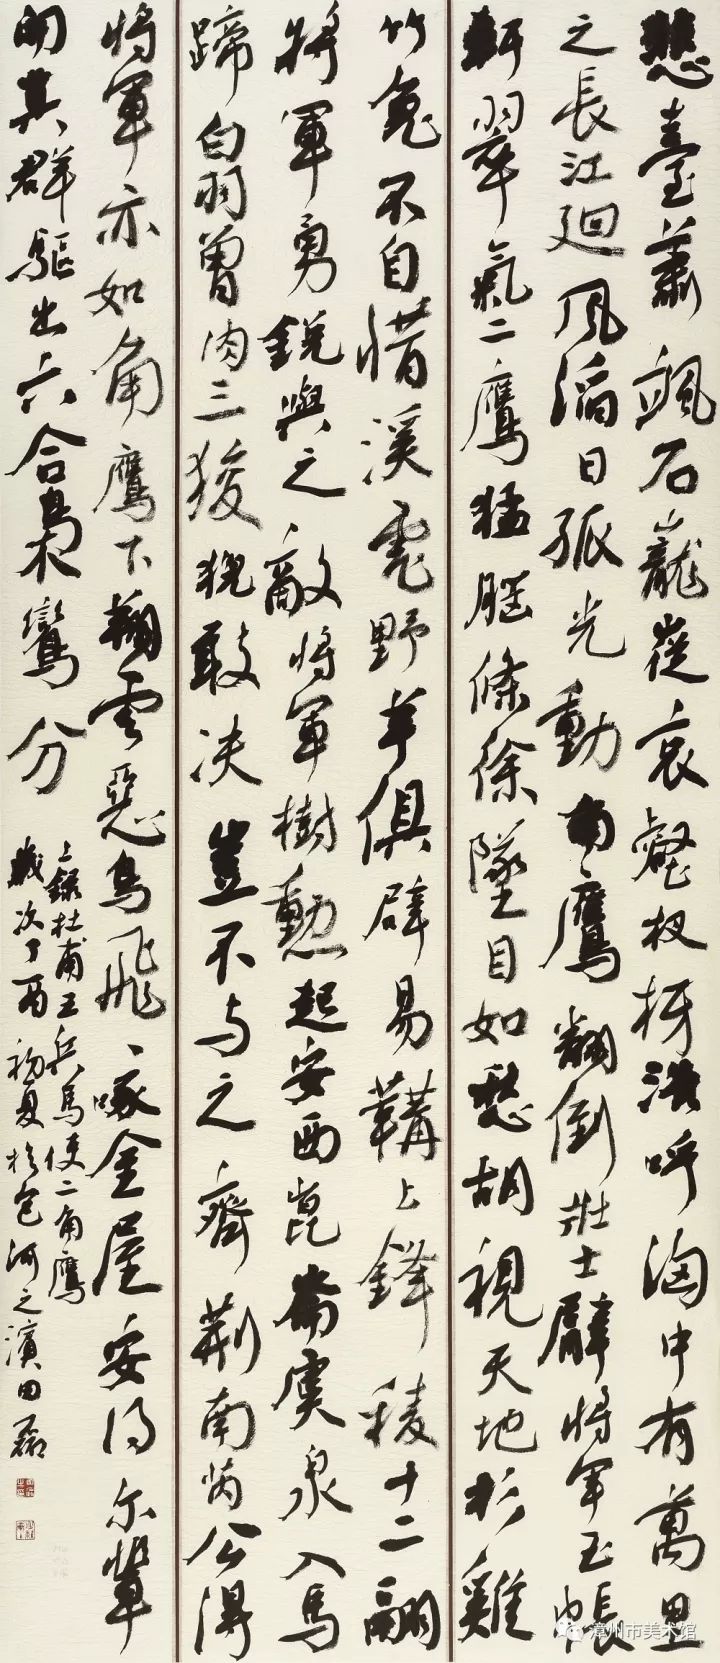 悲臺蕭颯石巃嵸哀壑杈枒浩呼洶中有萬里
之長江廻風滔日孤光動角鷹翻倒壯士臂將軍玉帳
軒翠氣二鷹猛腦條徐墜目如愁胡視天地杉雞
竹兔不自惜溪虎野羊俱辟易韝上鋒稜十二翮
將軍勇銳與之敵將軍樹勳起安西崑崙虞泉入馬
蹄白羽曾肉三狻猊敢决豈不与之齊荊南芮公得
將軍亦如角鷹下翔雲惡鳥飛〻啄金屋安得尔輩
開其群驅出六合梟鸞分
上錄杜甫王兵馬使二角鷹
歲次丁酉初夏於包河之濱田磊
漳州市美术馆